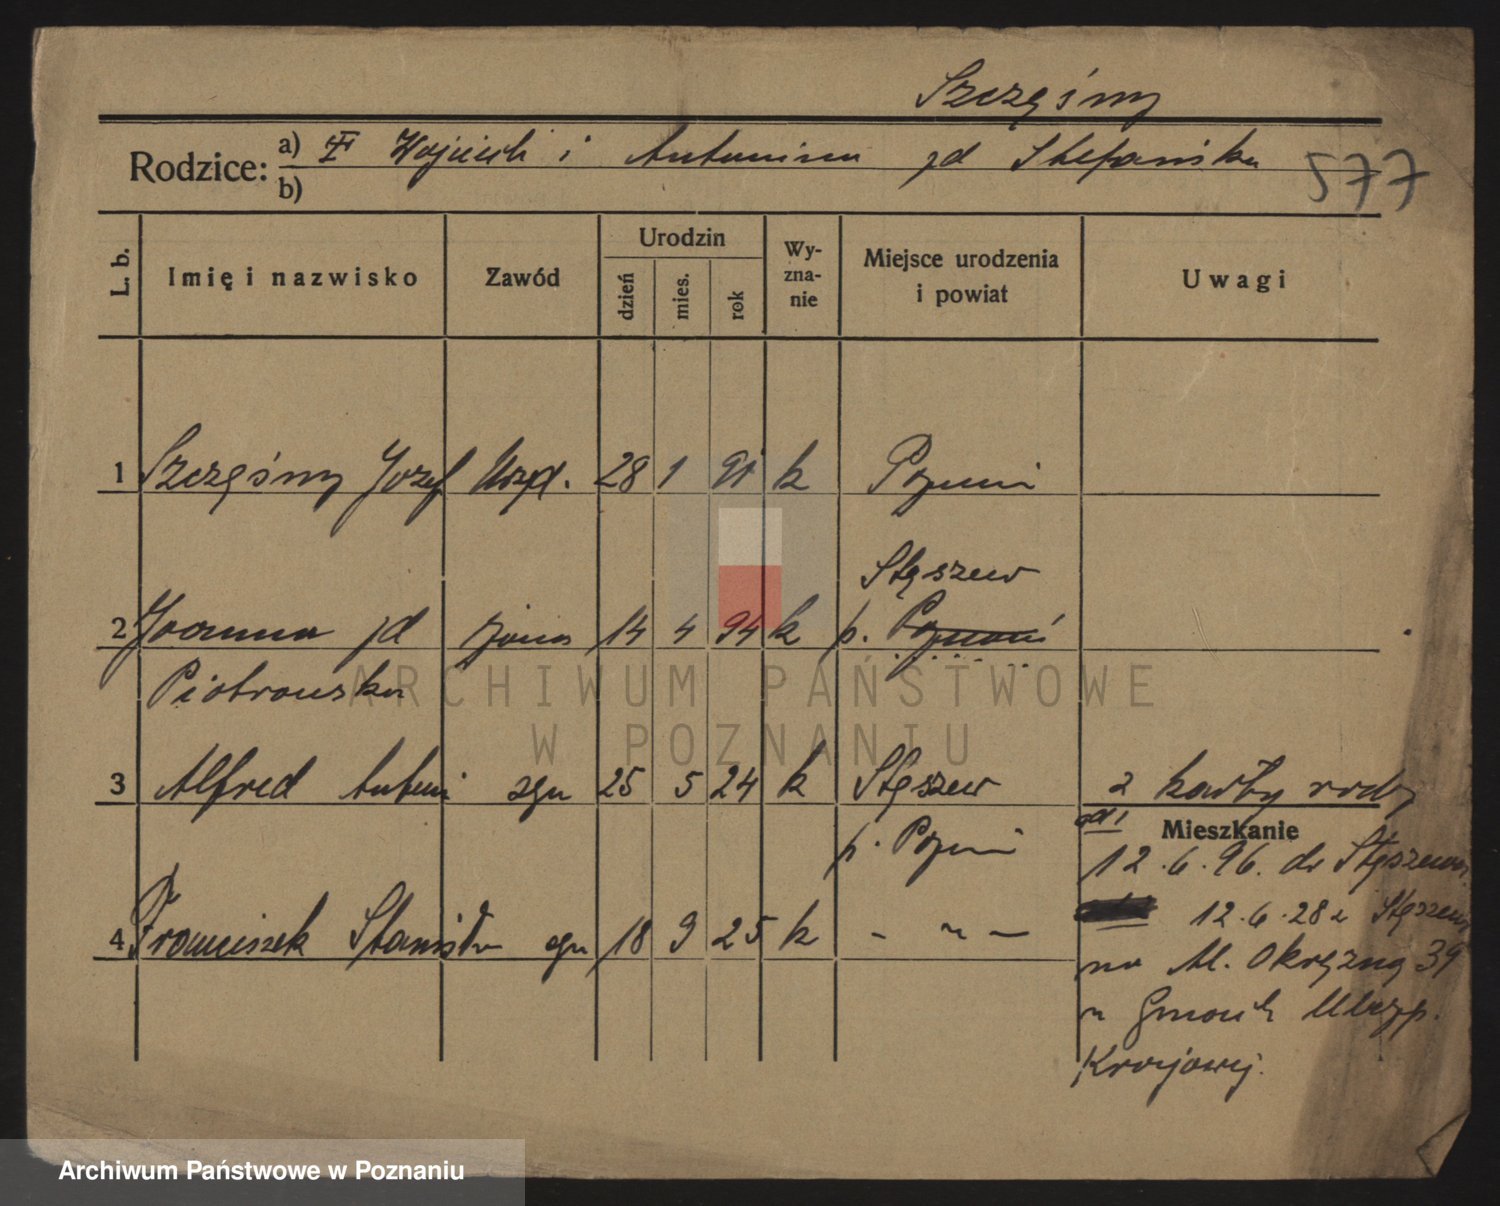 Szczęśny
Rodzice: a) Wojciech i Antonina zd Stefańska
b)
577
L. b. Imię i nazwisko Zawód Urodzin dzień mies. rok Wy-zna-nie Miejsce urodzenia i powiat Uwagi
1 Szczęśny Józef Urzęd. 28 1 91 k Poznań
Stęszew
2 Joanna zd żona 14 4 94 k p. Poznań
Piotrowska
ARCHIWUM PAŃSTWOWE
W POZNANIU
3 Alfred Antoni syn 25 5 24 k Stęszew 2 karty
p. Poznań
Mieszkanie
12.6.96. do Stęszewa
4 Franciszek Stanisław syn 18 9 25 k - " -
12.6.28 z Stęszewa
na Al. Okrężną 39
w Gmach Ubezp.
Krajowej.
Archiwum Państwowe w Poznaniu